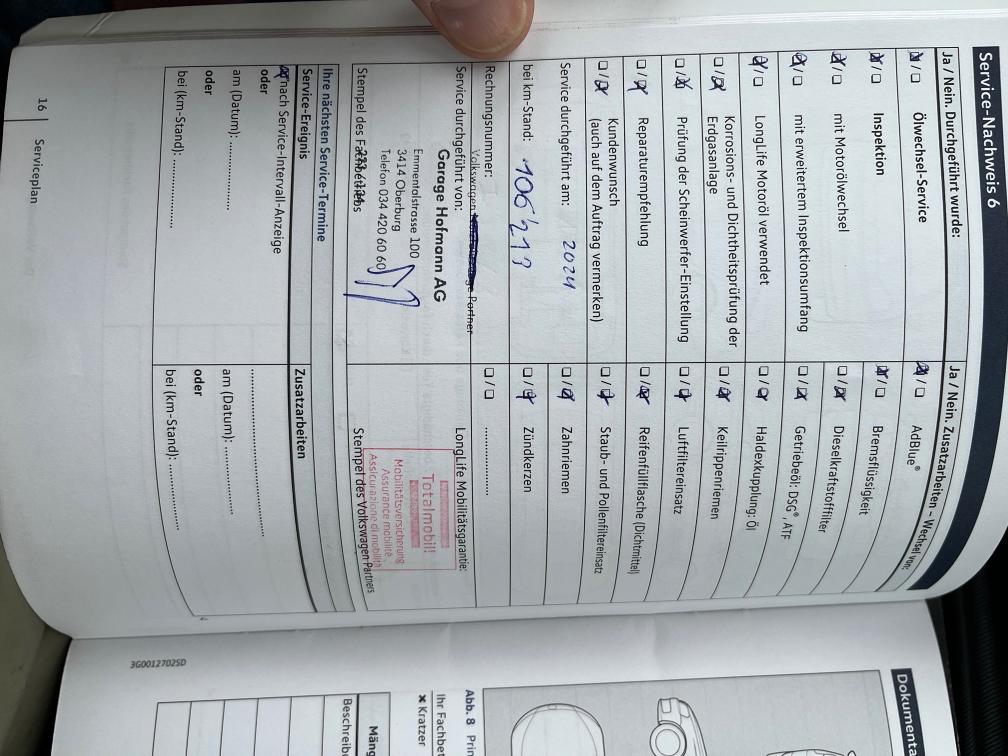 Service-Nachweis 6
Ja / Nein. Durchgeführt wurde:
Ölwechsel-Service
Inspektion
mit Motorölwechsel
mit erweitertem Inspektionsumfang
LongLife Motoröl verwendet
Korrosions- und Dichtheitsprüfung der
Erdgasanlage
Prüfung der Scheinwerfer-Einstellung
Reparaturempfehlung
Kundenwunsch
(auch auf dem Auftrag vermerken)
Service durchgeführt am: 2024
bei km-Stand: 106'213
Rechnungsnummer:
Service durchgeführt von:
Volkswagen Partner
Garage Hofmann AG
Emmentalstrasse 100
3414 Oberburg
Telefon 034 420 60 60
Stempel des Fachbetriebs
Ja / Nein. Zusatzarbeiten – Wechsel von:
AdBlue®
Bremsflüssigkeit
Dieselkraftstofffilter
Getriebeöl: DSG®, ATF
Haldexkupplung: Öl
Keilrippenriemen
Luftfiltereinsatz
Reifenfüllflasche (Dichtmittel)
Staub- und Pollenfiltereinsatz
Zahnriemen
Zündkerzen
LongLife Mobilitätsgarantie:
Totalmobil!
Mobilitätsversicherung
Assurance mobilité
Assicurazione di mobilità
Stempel des Volkswagen Partners
Ihre nächsten Service-Termine
Service-Ereignis
nach Service-Intervall-Anzeige
oder
am (Datum):
oder
bei (km-Stand):
Zusatzarbeiten
am (Datum):
oder
bei (km-Stand):
16 Serviceplan
3G0012702SD
Dokumenta
Abb. 8 Prin
Ihr Fachbet
× Kratzer
Mäng
Beschreib